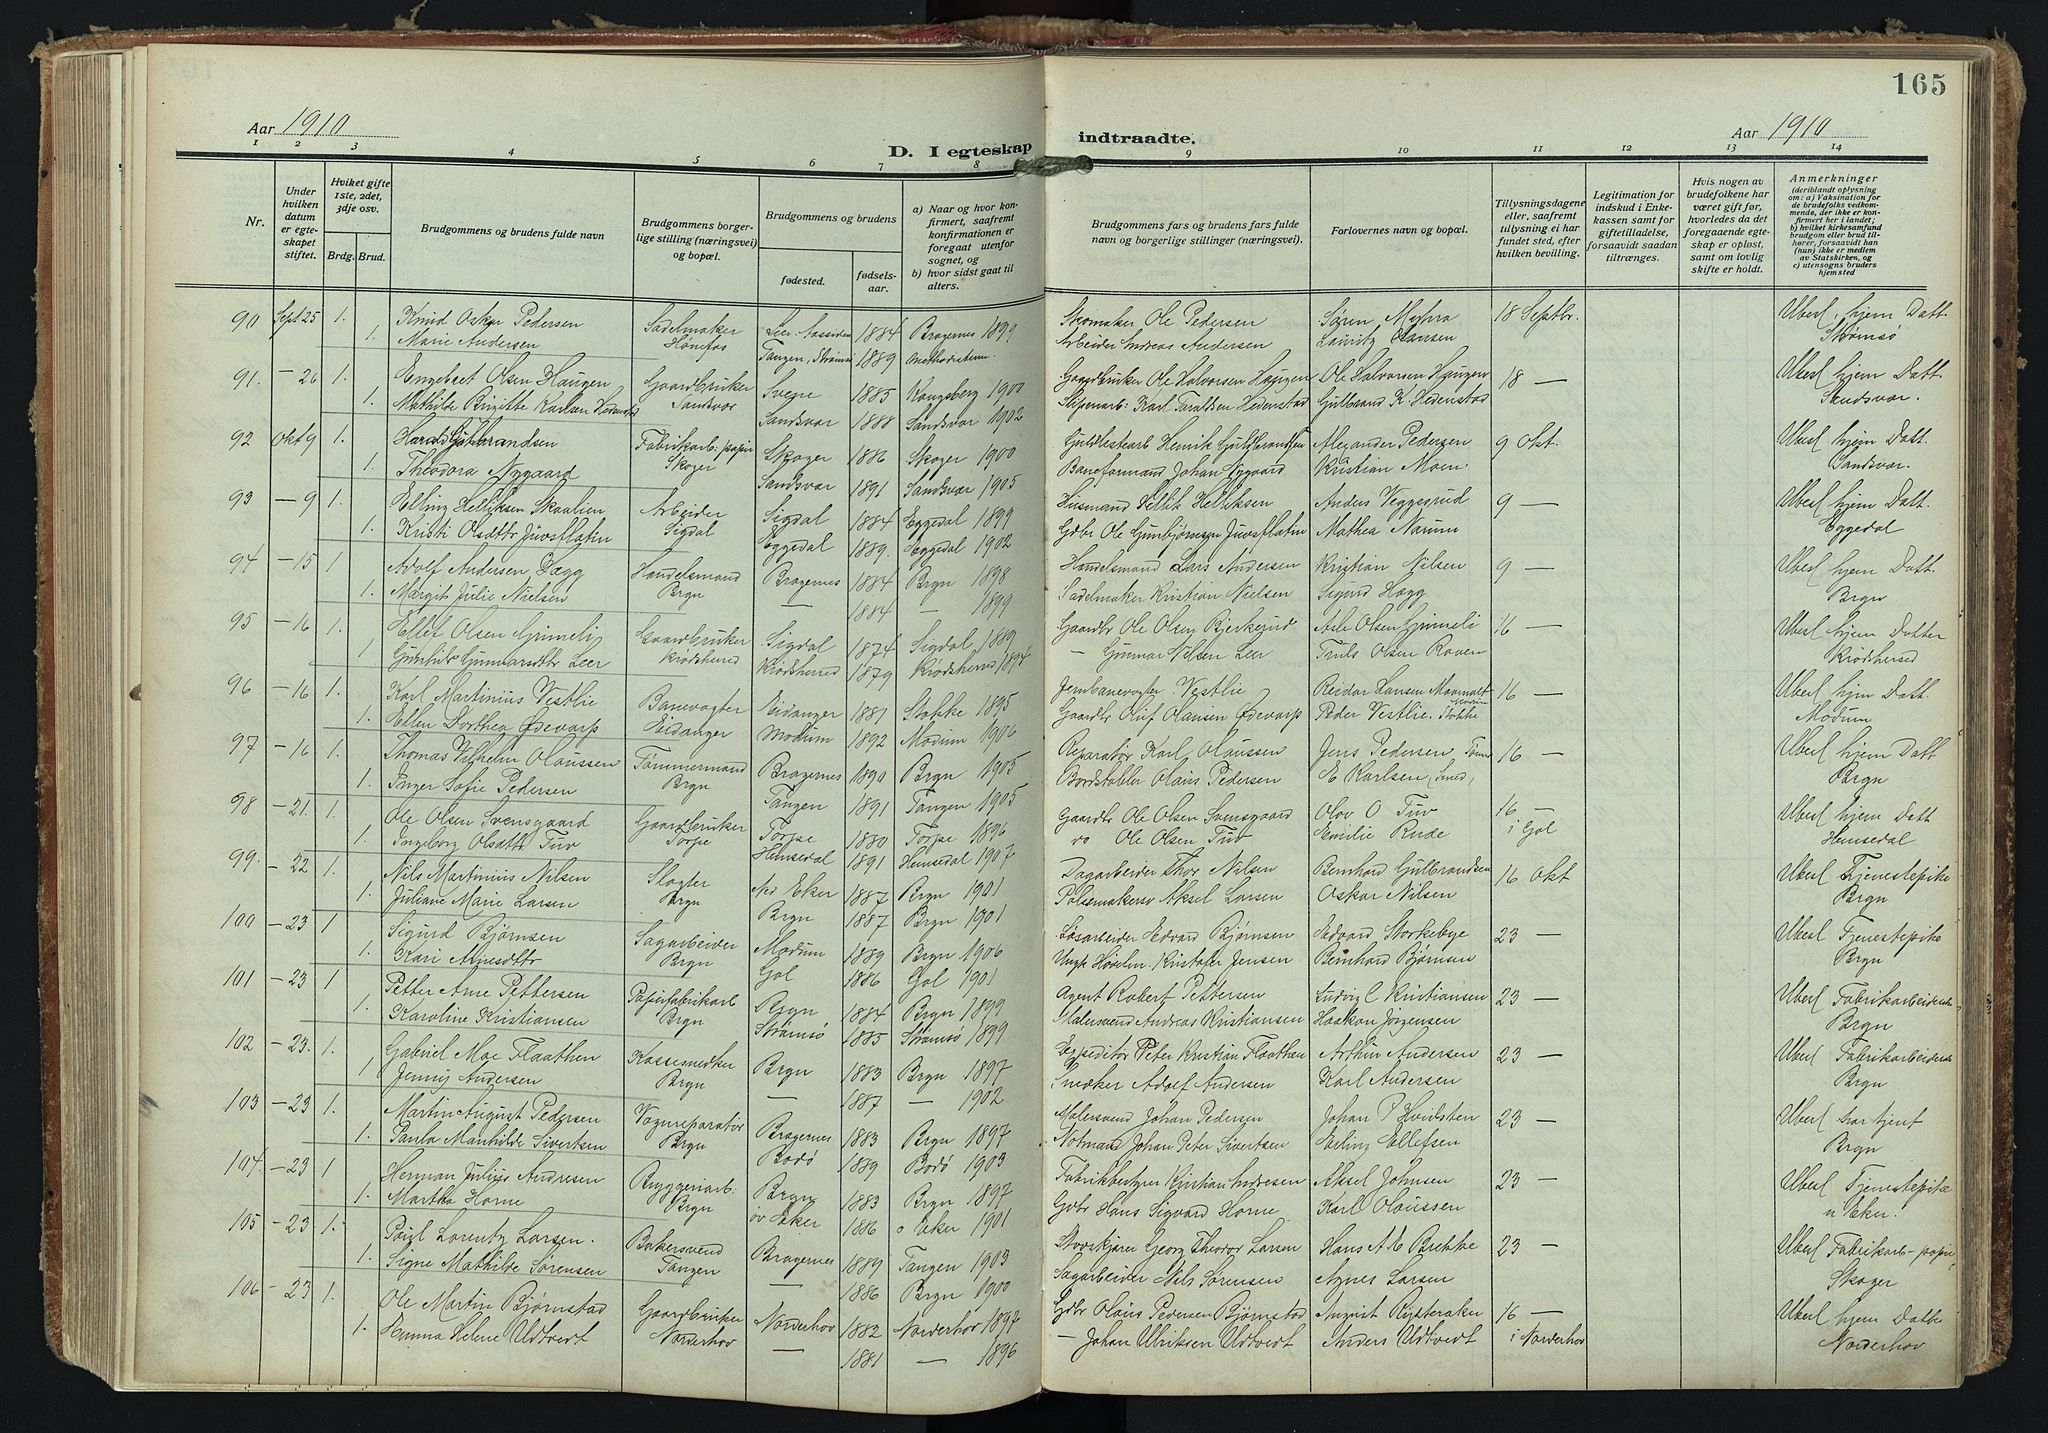 165
Aar 1910
D. I egteskap indtraadte.
Aar 1910
1 2 3 4 5 6 7 8 9 10 11 12 13 14
Nr.
Under hvilken datum er egteskapet stiftet.
Hviket gifte 1ste, 2det, 3dje osv.
Brdg. Brud.
Brudgommens og brudens fulde navn
Brudgommens borgerlige stilling (næringsvei) og bopæl.
Brudgommens og brudens
fødested.
fødselsaar.
a) Naar og hvor konfirmert, saafremt konfirmationen er foregaat utenfor sognet, og
b) hvor sidst gaat til alters.
Brudgommens fars og brudens fars fulde navn og borgerlige stillinger (næringsvei).
Forlovernes navn og bopæl.
Tillysningsdagene eller, saafremt tillysning ei har fundet sted, efter hvilken bevilling.
Legitimation for indskud i Enkekassen samt for giftetilladelse, forsaavidt saadan tiltrænges.
Hvis nogen av brudefolkene har været gift før, hvorledes da det foregaaende egteskap er opløst, samt om lovlig skifte er holdt.
Anmerkninger
(deriblandt oplysning om: a) Vaksination for de brudefolks vedkommende, der ikke er konfirmert her i landet; b) hvilket kirkesamfund brudgom eller brud tilhører, forsaavidt han (hun) ikke er medlem av Statskirken, og c) utensogns bruders hjemsted
90 Sept 25 1. Knud Oskar Pedersen Sadelmaker Lier 1884 Bragernes 1899 Skomaker Ole Pedersen Søren Myhra 18 Septbr. Uberl hjem Datt.
1. Marie Andersen Hønefos Tangen, Strømsø 1889 Arbeider Andreas Andersen Lauritz Hansen Strømsø
91. - 26 1. Engebret Olsen Haugen Gaardbruker Svene 1885 Kongsberg 1900 Gaardbruker Ole Halvorsen Haugen Ole Halvorsen Haugen 18 — Uberl hjem Datt.
1. Mathilde Birgitte Karlsen Hedenstad Sandsvær Sandsvær 1888 Sandsvær 1902 Karl Taraldsen Hedenstad Gulbrand K. Hedenstad Sandsvær.
92 Okt 9 1. Harald Guldbrandsen Fabrikarb: papir Skoger 1886 Skoger 1900 Henrik Guldbrandsen Alexander Pedersen 9 Okt. Uberl hjem Datt.
1. Theodora Nygaard Skoger Sandsvær 1891 Sandsvær 1905 Baneformand Johan Nygaard Kristian Moen Sandsvær.
93 - 9 1. Elling Helliksen Skaalien Arbeider Sigdal 1884 Eggedal 1899 Husmand Hellik Helliksen Anders Veggesrud 9 — Uberl hjem Datt.
1. Kristi Olsdtr Juvsflatin Sigdal Eggedal 1889. Eggedal 1902 Gdbr Ole Gunbjørnsen Juvsflatin Mathea Narum Eggedal
94 - 15 1 Adolf Andersen Hægg Handelsmand Bragernes 1884 Brgn 1898 Handelsmand Lars Andersen Kristian Nilsen 9 — Uberl hjem Datt.
1. Margit Julie Nielsen Brgn — 1884 — 1899 Sadelmaker Kristian Nielsen Sigurd Hægg Brgn
95 - 16 1. Ellef Olsen Grimeli Gaardbruker Sigdal 1874 Sigdal 1889 Gaardbr Ole Olsen Bjerkerud Asle Olsen Grimeli 16 — Uberl hjem Datter
1 Gunhild Gunnarsdtr Leer Krødsherred Krødsherred 1879 Krødsherred 1894 — Gunnar Nilsen Leer Truls Olsen Raven Krødsherred
96 - 16 1. Karl Martinius Vestlie Banevogter Eidanger 1881 Stokke 1895 Jernbanevogter Vestlie Reidar Larsen 16 — Uberl hjem Datt.
1. Ellen Dorthea Ødevarp Eidanger Modum 1892 Modum 1906 Gaardbr Oluf Olausen Ødevarp Peder Vestlie. Stokke Modum
97 - 16 1. Thomas Vilhelm Olaussen Tømmermand Bragernes 1890 Brgn 1905 Reparatør Karl Olaussen Jens Pedersen Tømr 16 — Uberl hjem Datt
1. Inger Sofie Pedersen Brgn Tangen 1891 Tangen 1905 Bordstabler Olaus Pedersen E Karlsen (Smed) Brgn
98 - 21. 1. Ole Olsen Svensgaard Gaardbruker Torpe 1880 Torpe 1896 Gaardbr Ole Olsen Svensgaard Olav O Tuv 16 — Uberl hjem Datt
1. Ingeborg Olsdtr Tuv Torpe Hemsedal 1891 Hemsedal 1907 do Ole Olsen Tuv Emilie Rude i Gol Hemsedal
99. - 22 1. Nils Martinius Nilsen Slagter Ned Eker 1887 Brgn 1901 Dagarbeider Thor Nilsen Bernhard Gulbrandsen 16 Okt Uberl Tjenestepike
1. Juliane Marie Larsen Brgn Brgn 1887 Brgn 1901 Pølsemakersv Aksel Larsen Oskar Nilsen Brgn
100 - 23 1 Sigurd Bjørnsen Sagarbeider Modum 1889 Brgn 1906 Løsarbeider Edvard Bjørnsen Edvard Storkebye 23 — Uberl Tjenestepike
1. Kari Arnesdtr Brgn Gol 1886 Gol 1901 Kristofer Jensen Bernhard Bjørnsen Brgn
101 - 23 1 Petter Arne Pettersen Papirfabrikarb Brgn 1884 Brgn 1899 Agent Robert Pettersen Ludvig Kristiansen 23 — Uberl Fabrikarbeiderske
1. Karoline Kristiansen Brgn Strømsø 1885 Strømsø 1899 Malersvend Andreas Kristiansen Haakon Jørgensen Brgn
102 - 23. 1. Gabriel Moe Flaathen Kassemedker Brgn 1883 Brgn 1897 Expeditør Peter Kristian Flaathen Arthur Andersen 23 — Uberl Fabrikarbeiderske
1 Jenny Andersen Brgn — 1887 — 1902 Snedker Adolf Andersen Karl Andersen Brgn
103 - 23 1. Martin August Pedersen Vognreparatør Bragernes 1883 Brgn 1897 Malersvend Johan Pedersen Johan P Hvidsten 23 — Uberl har tjent
1. Paula Manhilde Sivertsen Brgn Bodø 1889 Bodø 1903 Notmand Johan Peter Sivertsen Erling Ellefsen Brgn
104. - 23 1 Herman Julius Andresen Bryggeriarb: Brgn 1883 Brgn 1897 Fabrikbestyrer Kristian Andresen Aksel Johnsen 23 — Uberl Tjenestepike
1. Martha Horne Brgn øv Eker 1886 o Eker 1901 Gdbr Hans Sigvard Horne Karl Olaussen n Eker.
105 - 23 1. Paul Lorentz Larsen. Bakersvend Bragernes 1889 Tangen 1903 Georg Theodor Larsen Hans A M Brekke 23 — Uberl Fabrikarb - papir,
1. Signe Mathilde Sørensen Tangen — 1886 Brgn 1900 Sagarbeider Nils Sørensen Agnes Larsen Skoger
106 - 23 1. Ole Martin Bjørnstad Gaardbruker Norderhov 1882 Norderhov 1897 Gdbr Olaus Pedersen Bjørnstad August Rytteraker 16 — Uberl hjem Datter
1. Emma Helene Udtvedt Norderhov — 1881 — 1896 — Johan Ulriksen Udtvedt Anders Udtvedt i Norderhov Norderhov